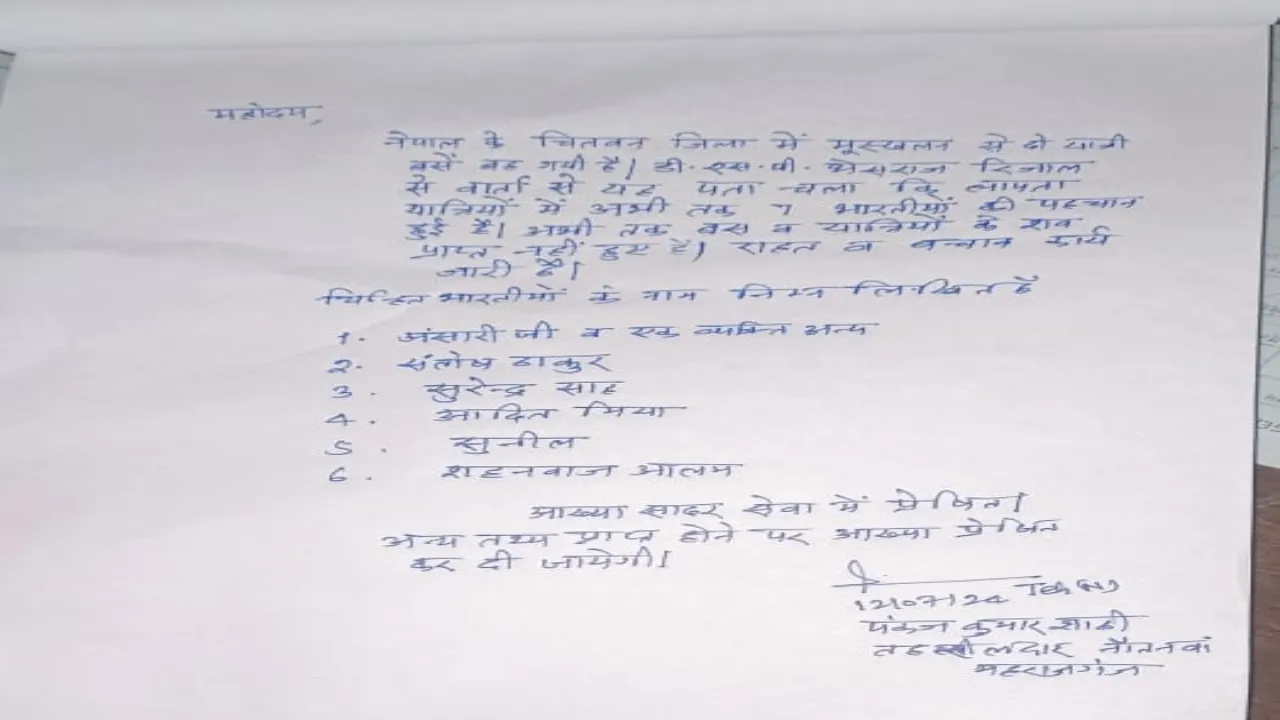 महोदय,
नेपाल के चितवन जिला में भूस्खलन से दो यात्री
बसें बह गयी है। डी.एस.पी. भेसराज रिजाल
से वार्ता से यह पता चला कि लापता
यात्रियों में अभी तक 7 भारतीयों की पहचान
हुई है। अभी तक बस व यात्रियों के शव
प्राप्त नहीं हुए है। राहत व बचाव कार्य
जारी है।
चिन्हित भारतीयों के नाम निम्न लिखित है
1. अंसारी जी व एक व्यक्ति अन्य
2. संतोष ठाकुर
3. सुरेन्द्र साह
4. आदित मिया
5. सुनील
6. शहनवाज आलम
आख्या सादर सेवा में प्रेषित।
अन्य तथ्य प्राप्त होने पर आख्या प्रेषित
कर दी जायेगी।
12/07/24
पंकज कुमार शाही
तहसीलदार नौतनवां
महराजगंज